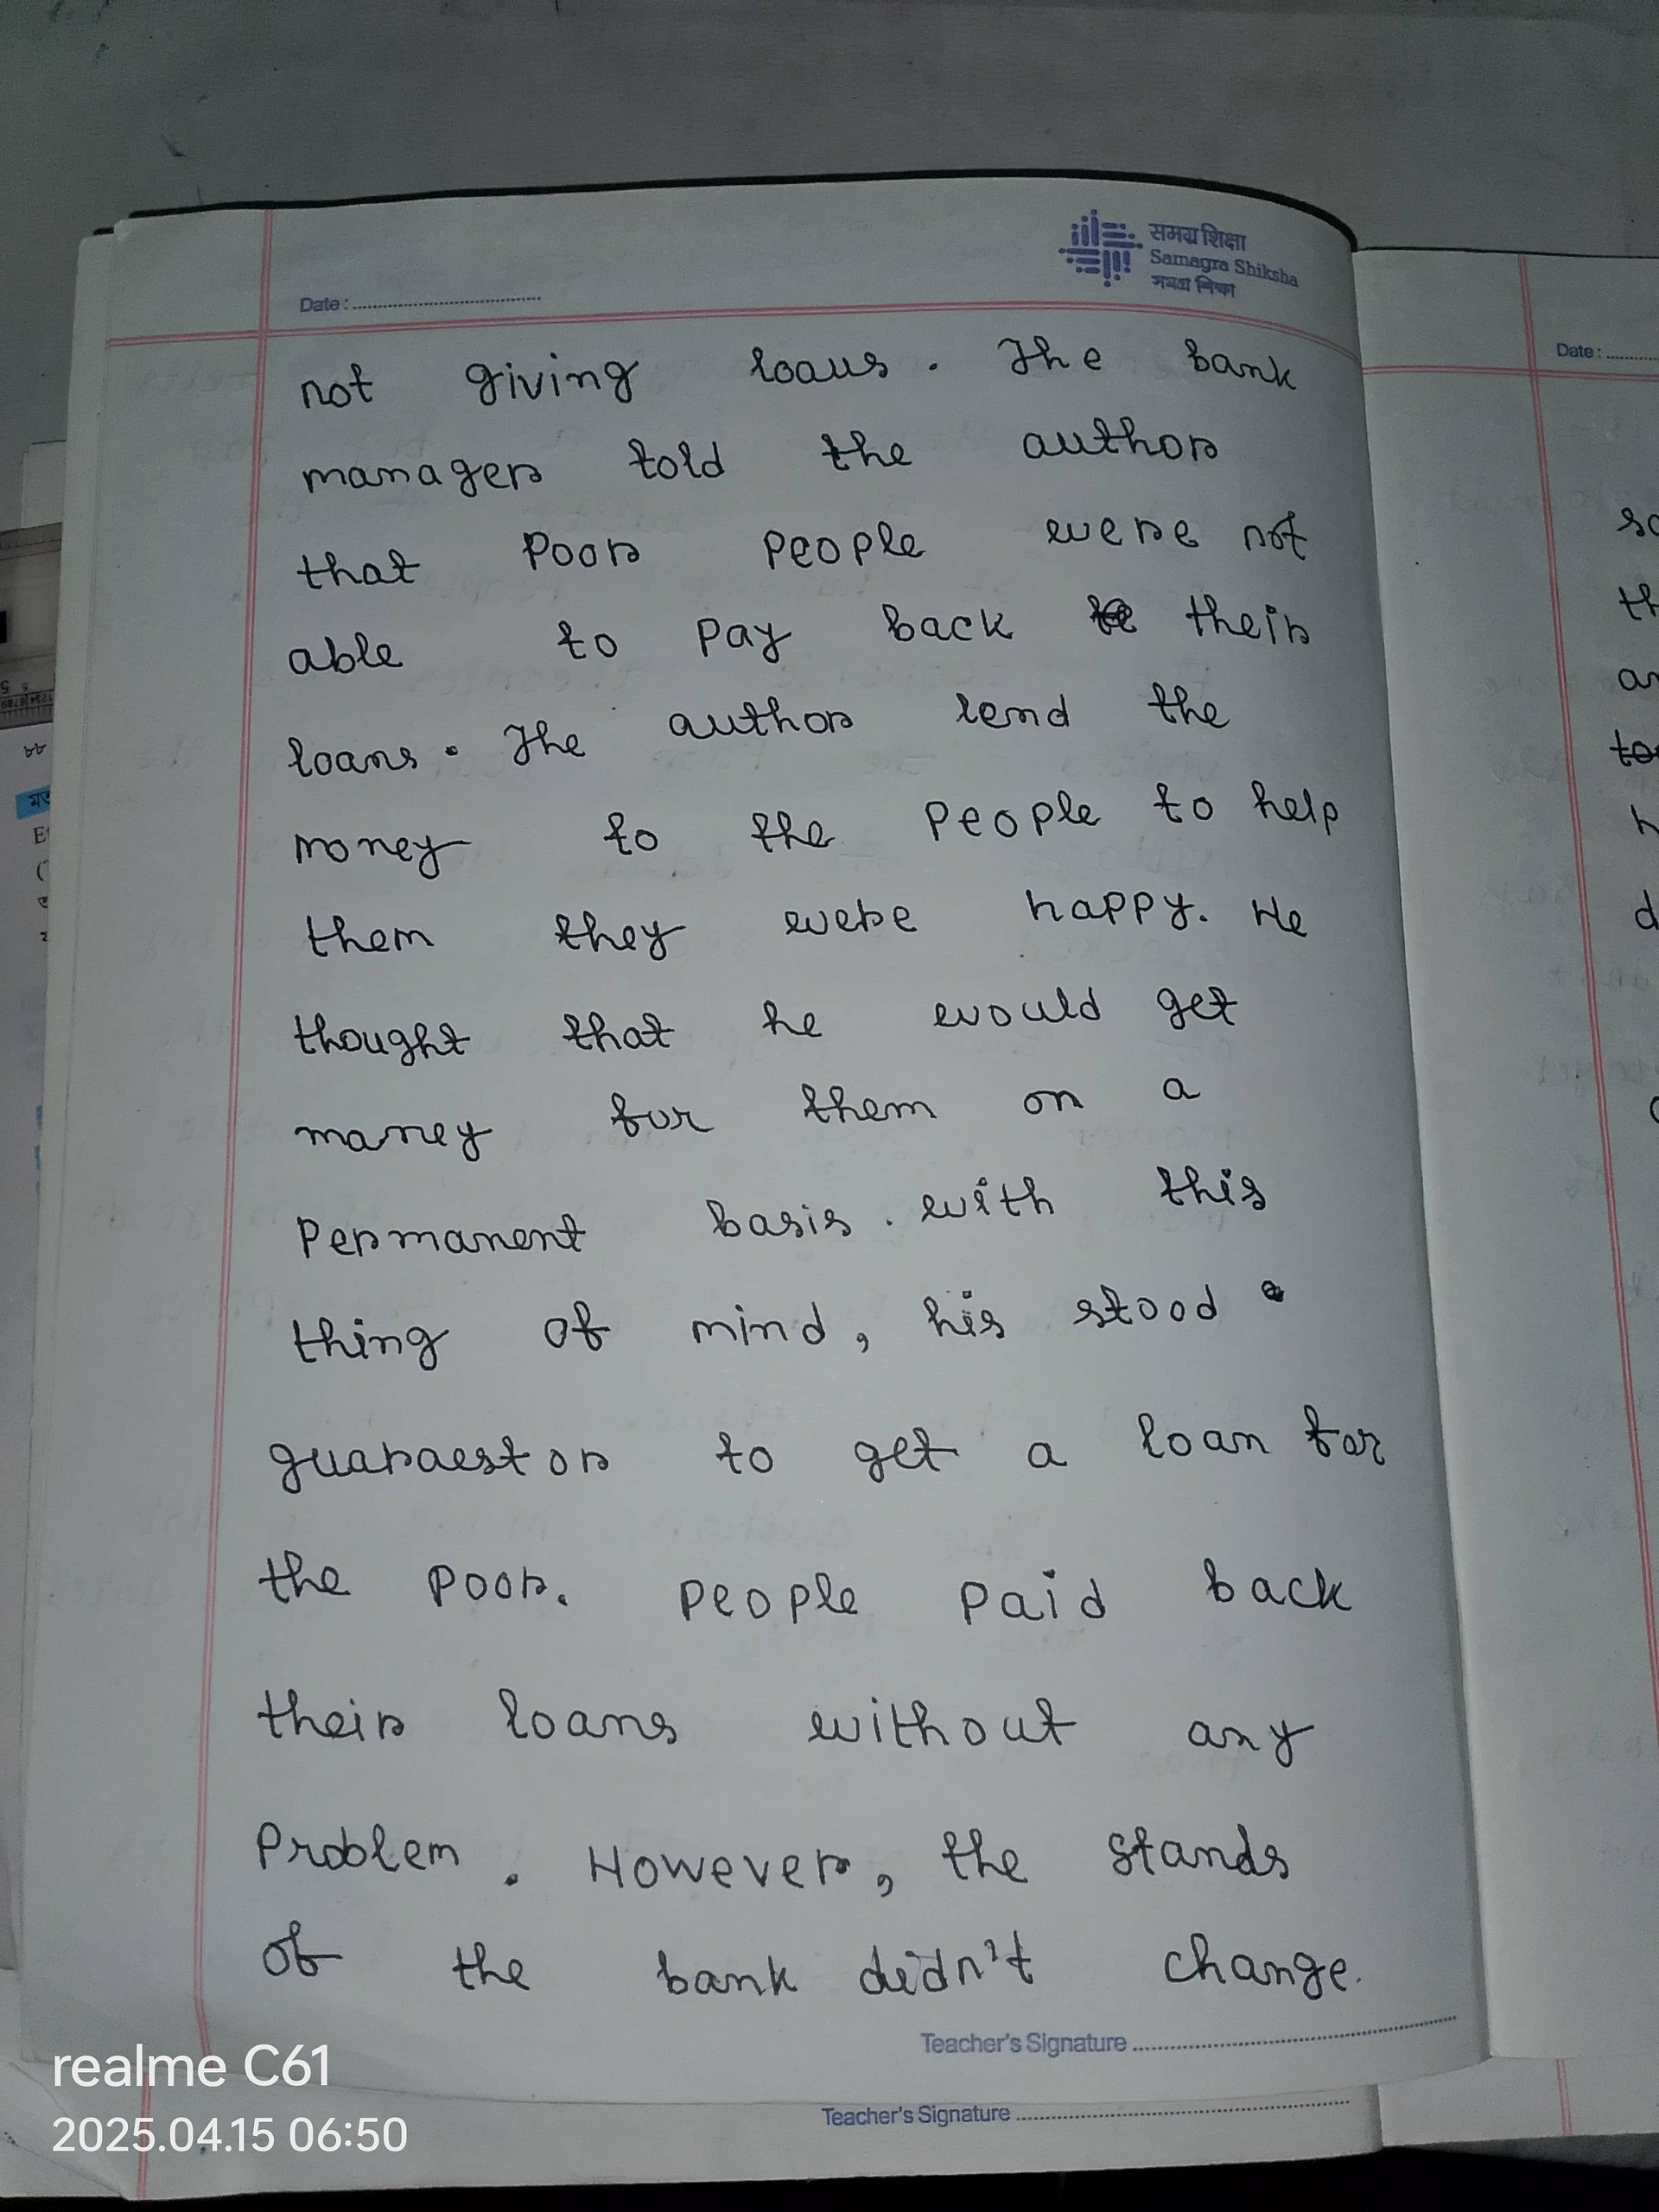 समग्र शिक्षा
Samagra Shiksha
Date :
not giving loaus. The bank
manager told the author
that Poor People were not
able to pay back their
loans. The author lend the
money to the People to help
them they were happy. He
thought that he would get
maney for them on a
Permanent basis. with this
thing of mind, his stood
guaraestor to get a loan for
the Poor. People Paid back
their loans without any
Problem. However, the stands
of the bank didn't change.
Teacher's Signature
Teacher's Signature
Date :
realme C61
2025.04.15 06:50